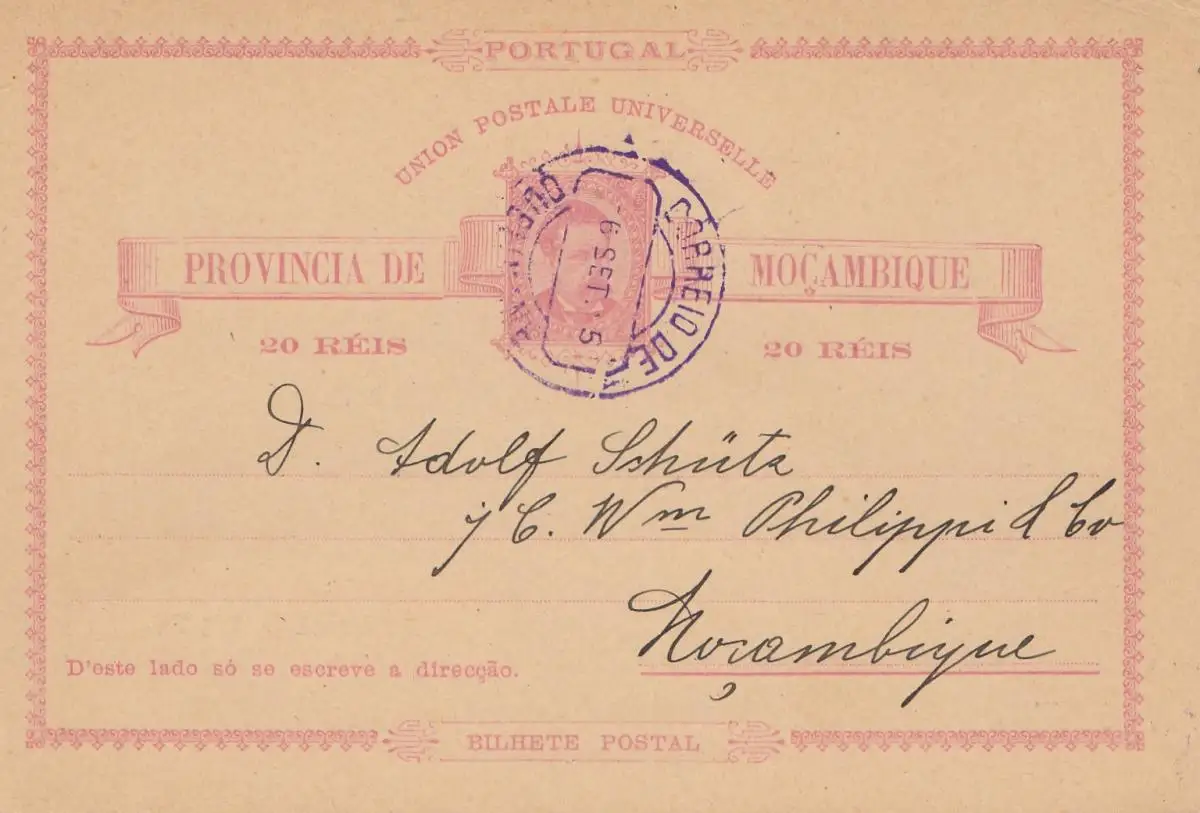 PORTUGAL
UNION POSTALE UNIVERSELLE
PROVINCIA DE MOÇAMBIQUE
20 RÉIS 20 RÉIS
CORREIO DE
6 SET. 5
D. Adolf Schütz
j C. Wm Philippi & Co
Moçambique
D'este lado só se escreve a direcção.
BILHETE POSTAL